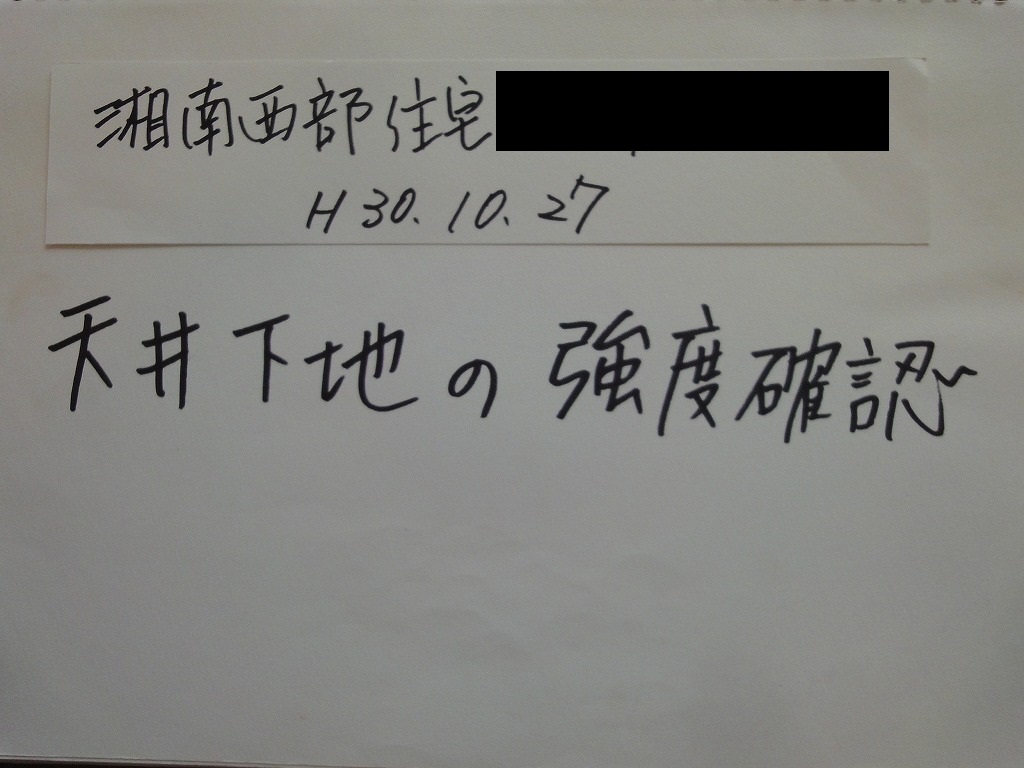 湘南西部住宅
H30.10.27
天井下地の強度確認